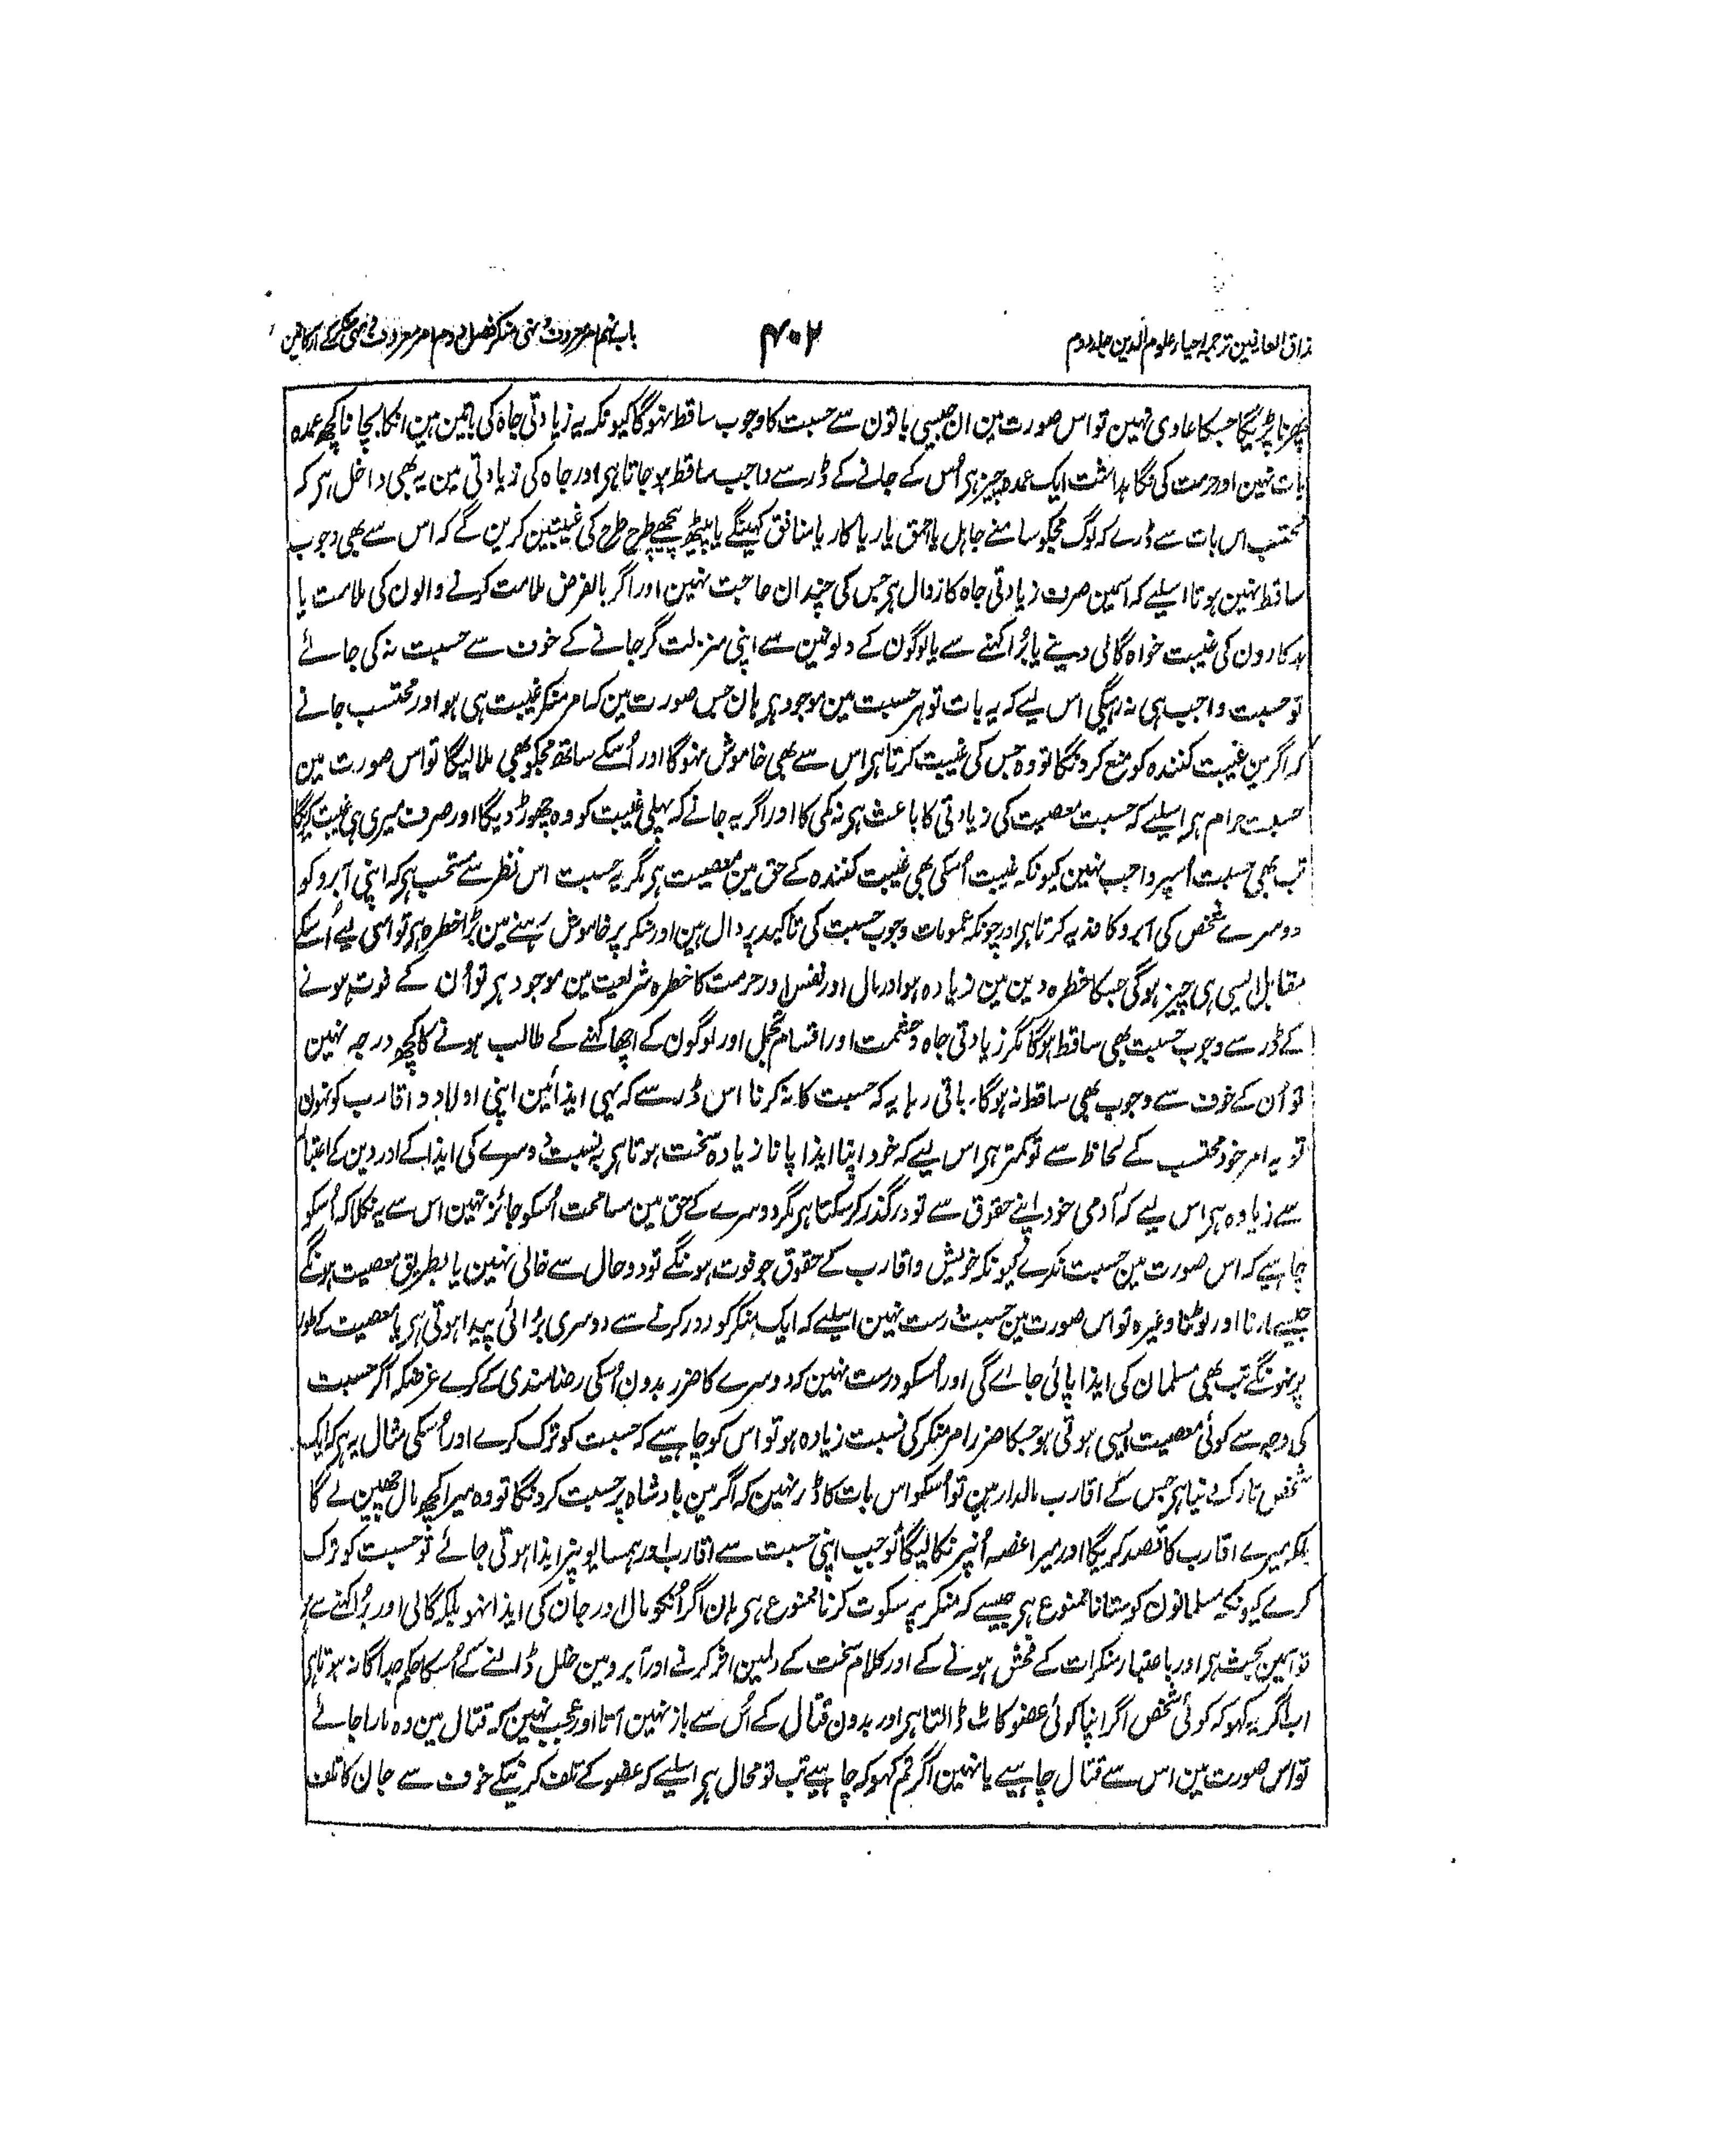 مذاق العارفین ترجمہ احیاء علوم الدین جلد دوم
۴۰۲
باب نہم امر معروف و نہی منکر فصل دوم امر معروف و نہی منکر کے ارکانمین
پھرنا پڑیگا جسکا عادی نہین تو اس صورت مین ان جیسی باتون سے حسبت کا وجوب ساقط نہوگا کیونکہ یہ زیادتی جاہ کی باتین ہین انکا بچانا کچھ عمدہ
بات نہین اور حرمت کی نگاہداشت ایک عمدہ چیز ہی اُس کے جانے کے ڈر سے واجب ساقط ہو جاتا ہی اور جاہ کی زیادتی مین یہ بھی داخل ہی کہ
محتسب اس بات سے ڈرے کہ لوگ مجکو سامنے جاہل یا احمق یا ریاکار یا منافق کہینگے یا پیٹھ پیچھے طرح طرح کی غیبتین کرین گے کہ اس سے بھی وجوب
ساقط نہین ہوتا اسلیے کہ اسمین صرف زیادتی جاہ کا زوال ہی جس کی چندان حاجت نہین اور اگر بالفرض ملامت کرنے والون کی ملامت یا
بدکارون کی غیبت خواہ گالی دینے یا بُرا کہنے سے یا لوگون کے دلونمین سے اپنی منزلت گر جانے کے خوف سے حسبت نہ کی جائے
تو حسبت واجب ہی نہ رہیگی اس لیے کہ یہ بات تو ہر حسبت مین موجود ہی ہان جس صورت مین کہ امر منکر غیبت ہی ہو اور محتسب جانے
کہ اگر مین غیبت کنندہ کو منع کرونگا تو وہ جس کی غیبت کرتا ہی اس سے بھی خاموش نہوگا اور اُسکے ساتھ مجکو بھی ملا لیگا تو اس صورت مین
حسبت حرام ہی اسلیے کہ حسبت معصیت کی زیادتی کا باعث ہی نہ کمی کا اور اگر یہ جانے کہ پہلی غیبت کو وہ چھوڑ دیگا اور صرف میری ہی غیبت کریگا
تب بھی حسبت اُسپر واجب نہین کیونکہ غیبت اُسکی بھی غیبت کنندہ کے حق مین معصیت ہی مگر یہ حسبت اس نظر سے مستحب ہی کہ اپنی آبرو کو
دوسرے شخص کی آبرو کا فدیہ کرتا ہی اور چونکہ عمومات وجوب حسبت کی تاکید پر دال ہین اور منکر پر خاموش رہنے مین بڑا خطرہ ہی تو اسی لیے اُسکے
مقابل ایسی ہی چیز ہوگی جسکا خطرہ دین مین زیادہ ہو اور مال اور نفس اور حرمت کا خطرہ شریعت مین موجود ہی تو اُن کے فوت ہونے
کے ڈر سے وجوب حسبت بھی ساقط ہوگا مگر زیادتی جاہ و حشمت اور اقسام تجمل اور لوگون کے اچھا کہنے کے طالب ہونے کا کچھ درجہ نہین
تو اُن کے خوف سے وجوب بھی ساقط نہ ہوگا۔ باقی رہا یہ کہ حسبت کا نہ کرنا اس ڈر سے کہ یہی ایذائین اپنی اولاد و اقارب کو نہون
تو یہ امر خود محتسب کے لحاظ سے تو کمتر ہی اس لیے کہ خود اپنا ایذا پانا زیادہ سخت ہوتا ہی بہ نسبت دوسرے کی ایذا کے اور دین کے اعتبار
سے زیادہ ہی اس لیے کہ آدمی خود اپنے حقوق سے تو درگذر کر سکتا ہی مگر دوسرے کے حق مین مسامحت اُسکو جائز نہین اس سے یہ نکلا کہ اُسکو
چاہیے کہ اس صورت مین حسبت نکرے کیونکہ خویش و اقارب کے حقوق جو فوت ہونگے تو دو حال سے خالی نہین یا بطریق معصیت ہونگے
جیسے مارنا اور لوٹنا وغیرہ تو اس صورت مین حسبت درست نہین اسلیے کہ ایک منکر کو دور کرنے سے دوسری بُرائی پیدا ہوتی ہی یا معصیت کے طور
پر نہونگے تب بھی مسلمان کی ایذا پائی جاے گی اور اُسکو درست نہین کہ دوسرے کا ضرر بدون اُسکی رضامندی کے کرے غرضکہ اگر حسبت
کی وجہ سے کوئی معصیت ایسی ہوتی ہو جسکا ضرر امر منکر کی نسبت زیادہ ہو تو اس کو چاہیے کہ حسبت کو ترک کرے اور اُسکی مثال یہ ہی کہ ایک
شخص تارک دنیا ہی جس کے اقارب مالدار ہین تو اُسکو اس بات کا ڈر نہین کہ اگر مین بادشاہ پر حسبت کرونگا تو وہ میرا کچھ مال چھین لے گا
بلکہ میرے اقارب کا قصد کریگا اور میرا غصہ اُنپر نکالیگا تو جب اپنی حسبت سے اقارب اور ہمسایونپر ایذا ہوتی جائے تو حسبت کو ترک
کرے کیونکہ مسلمانون کو ستانا ممنوع ہی جیسے کہ منکر پر سکوت کرنا ممنوع ہی ہان اگر اُنکو مال اور جان کی ایذا نہو بلکہ گالی اور بُرا کہنے سے ہو
تو اسمین بحث ہی اور باعتبار منکرات کے فحش ہونے کے اور کلام سخت کے دلمین اثر کرنے اور آبرو مین خلل ڈالنے کے اُسکا حکم جداگانہ ہوتا ہی
اب اگر یہ کہو کہ کوئی شخص اگر اپنا کوئی عضو کاٹ ڈالتا ہی اور بدون قتال کے اُس سے باز نہین آتا اور عجب نہین کہ قتال مین وہ مارا جائے
تو اس صورت مین اس سے قتال چاہیے یا نہین اگر تم کہو کہ چاہیے تب تو محال ہی اسلیے کہ عضو کے تلف کرنیکے خوف سے جان کا تلف